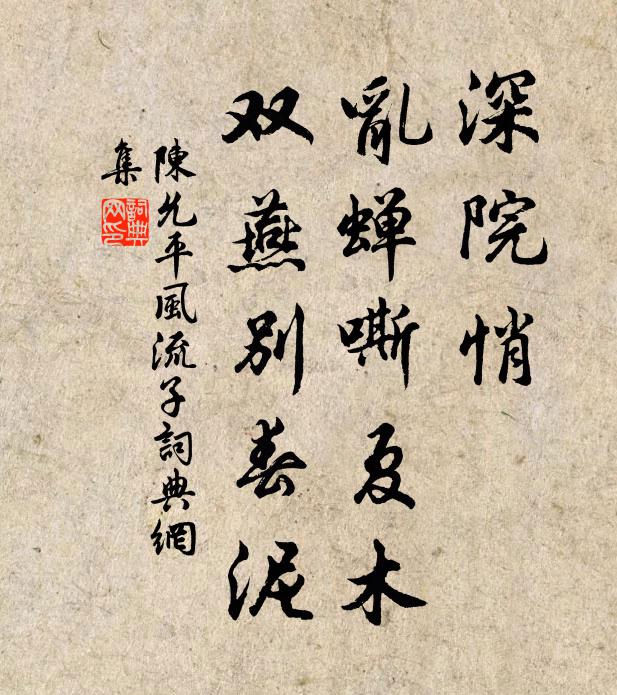 深院悄
亂蝉嘶夏木
双燕別春泥
陳允平風流子詞典網
集
詞典网印